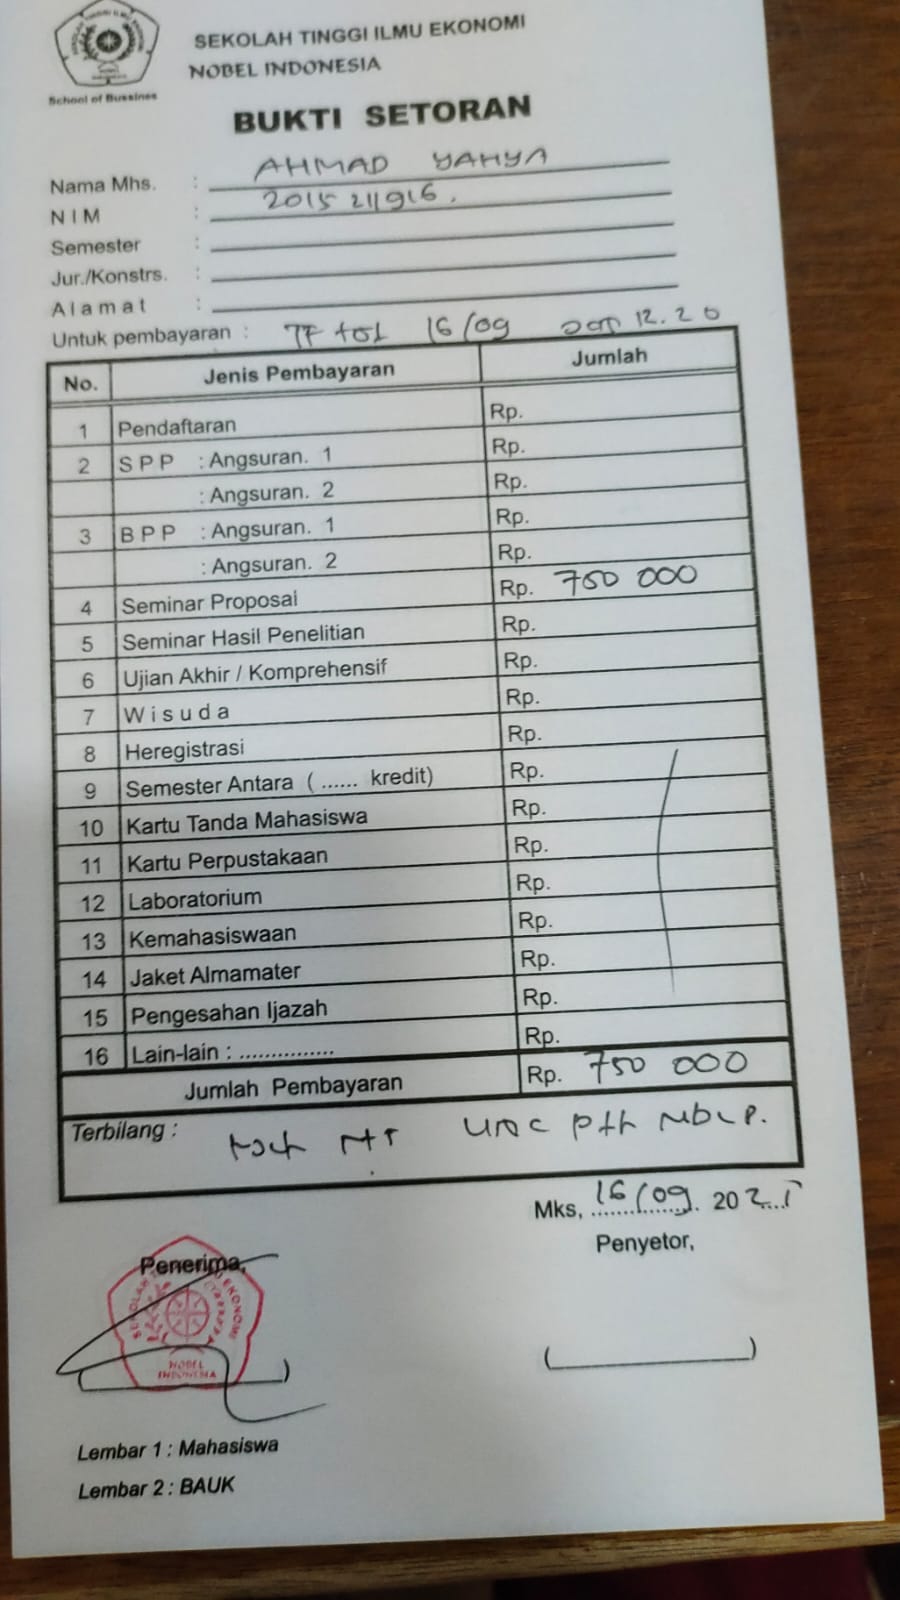 SEKOLAH TINGGI ILMU EKONOMI
NOBEL INDONESIA
School of Bussines
BUKTI SETORAN
Nama Mhs. : AHMAD YAHYA
N I M : 2015 211916.
Semester :
Jur./Konstrs. :
A l a m a t :
Untuk pembayaran : TF tgl 16/09 12.20
No. Jenis Pembayaran Jumlah
1 Pendaftaran Rp.
2 S P P : Angsuran. 1 Rp.
: Angsuran. 2 Rp.
3 B P P : Angsuran. 1 Rp.
: Angsuran. 2 Rp.
4 Seminar Proposal Rp. 750 000
5 Seminar Hasil Penelitian Rp.
6 Ujian Akhir / Komprehensif Rp.
7 W i s u d a Rp.
8 Heregistrasi Rp.
9 Semester Antara ( ...... kredit) Rp.
10 Kartu Tanda Mahasiswa Rp.
11 Kartu Perpustakaan Rp.
12 Laboratorium Rp.
13 Kemahasiswaan Rp.
14 Jaket Almamater Rp.
15 Pengesahan Ijazah Rp.
16 Lain-lain : ............... Rp.
Jumlah Pembayaran Rp. 750 000
Terbilang :
Mks, 16/09. 2021
Penyetor,
Penerima,
NOBEL
INDONESIA
Lembar 1 : Mahasiswa
Lembar 2 : BAUK